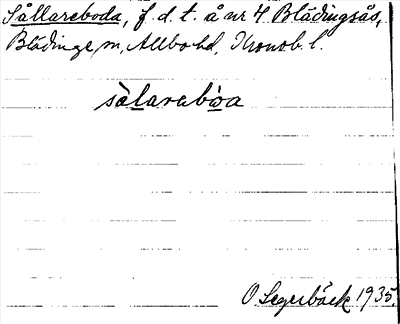 Sållareboda, f. d. t. å nr 4 Blädingsås,
Blädinge sn, Allbo hd, Kronob. l.
sòlarebòa
O Segerbäck 1935.